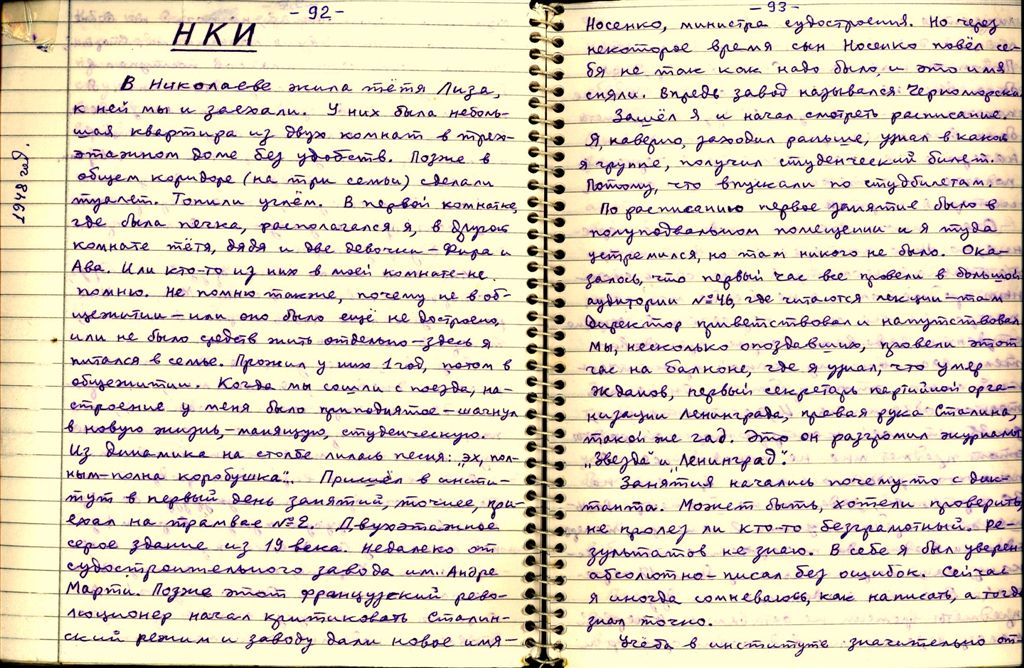 - 92 -
НКИ
1948 год.
В Николаеве жила тётя Лиза,
к ней мы и заехали. У них была неболь-
шая квартира из двух комнат в трёх-
этажном доме без удобств. Позже в
общем коридоре (на три семьи) сделали
туалет. Топили углём. В первой комнатке,
где была печка, располагался я, в другой
комнате тётя, дядя и две девочки - Фира и
Ава. Или кто-то из них в моей комнате - не
помню. Не помню также, почему не в об-
щежитии - или оно было ещё не достроено,
или не было средств жить отдельно - здесь я
питался в семье. Прожил у них 1 год, потом в
общежитии. Когда мы сошли с поезда, на-
строение у меня было приподнятое - шагнул
в новую жизнь, - манящую, студенческую.
Из динамика на столбе лилась песня: „Эх, пол-
ным-полна коробушка". Пришёл в инсти-
тут в первый день занятий, точнее, при-
ехал на трамвае №2. Двухэтажное
серое здание из 19 века. Недалеко от
судостроительного завода им. Андре
Марти. Позже этот французский рево-
люционер начал критиковать Сталин-
ский режим и заводу дали новое имя -
- 93 -
Носенко, министра судостроения. Но через
некоторое время сын Носенко повёл се-
бя не так как надо было, и это имя
сняли. Впредь завод назывался Черноморска
Зашёл я и начал смотреть расписание.
Я, наверно, заходил раньше, узнал в какой
я группе, получил студенческий билет.
Потому, что впускали по студбилетам.
По расписанию первое занятие было в
полуподвальном помещении и я туда
устремился, но там никого не было. Ока-
залось, что первый час все провели в большой
аудитории №46, где читаются лекции - там
директор приветствовал и напутствовал
Мы, несколько опоздавших, провели этот
час на балконе, где я узнал, что умер
Жданов, первый секретарь партийной орга-
низации Ленинграда, правая рука Сталина,
такой же гад. Это он разгромил журналы
„Звезда" и „Ленинград".
Занятия начались почему-то с дик-
танта. Может быть, хотели проверить,
не пролез ли кто-то безграмотный. Ре-
зультатов не знаю. В себе я был уверен
абсолютно - писал без ошибок. Сейчас
я иногда сомневаюсь, как написать, а тогда
знал точно.
Учёба в институте значительно от-